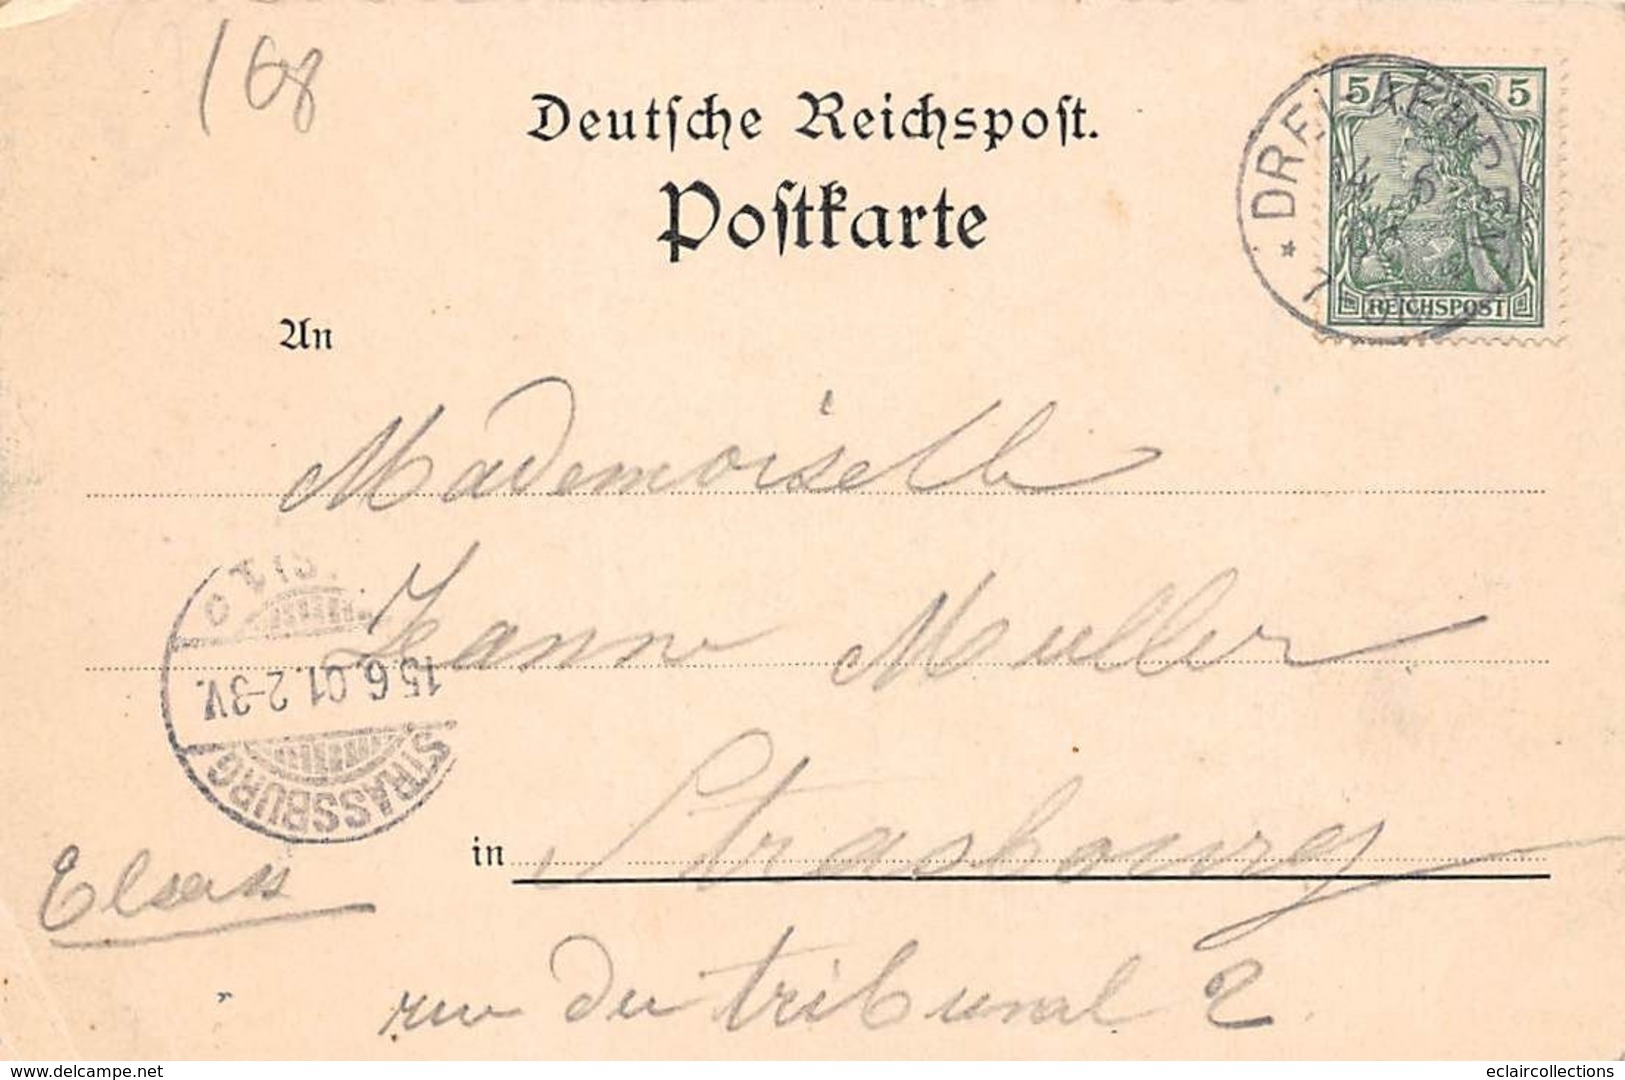 168
Deutsche Reichspost.
Postkarte
5 5
REICHSPOST
An
Mademoiselle
Jeanne Muller
15.6.01.2-3V.
STRASSBURG
in Strasbourg
Elsass
rue du tribunal 2.
delcampe.net
eclaircollections